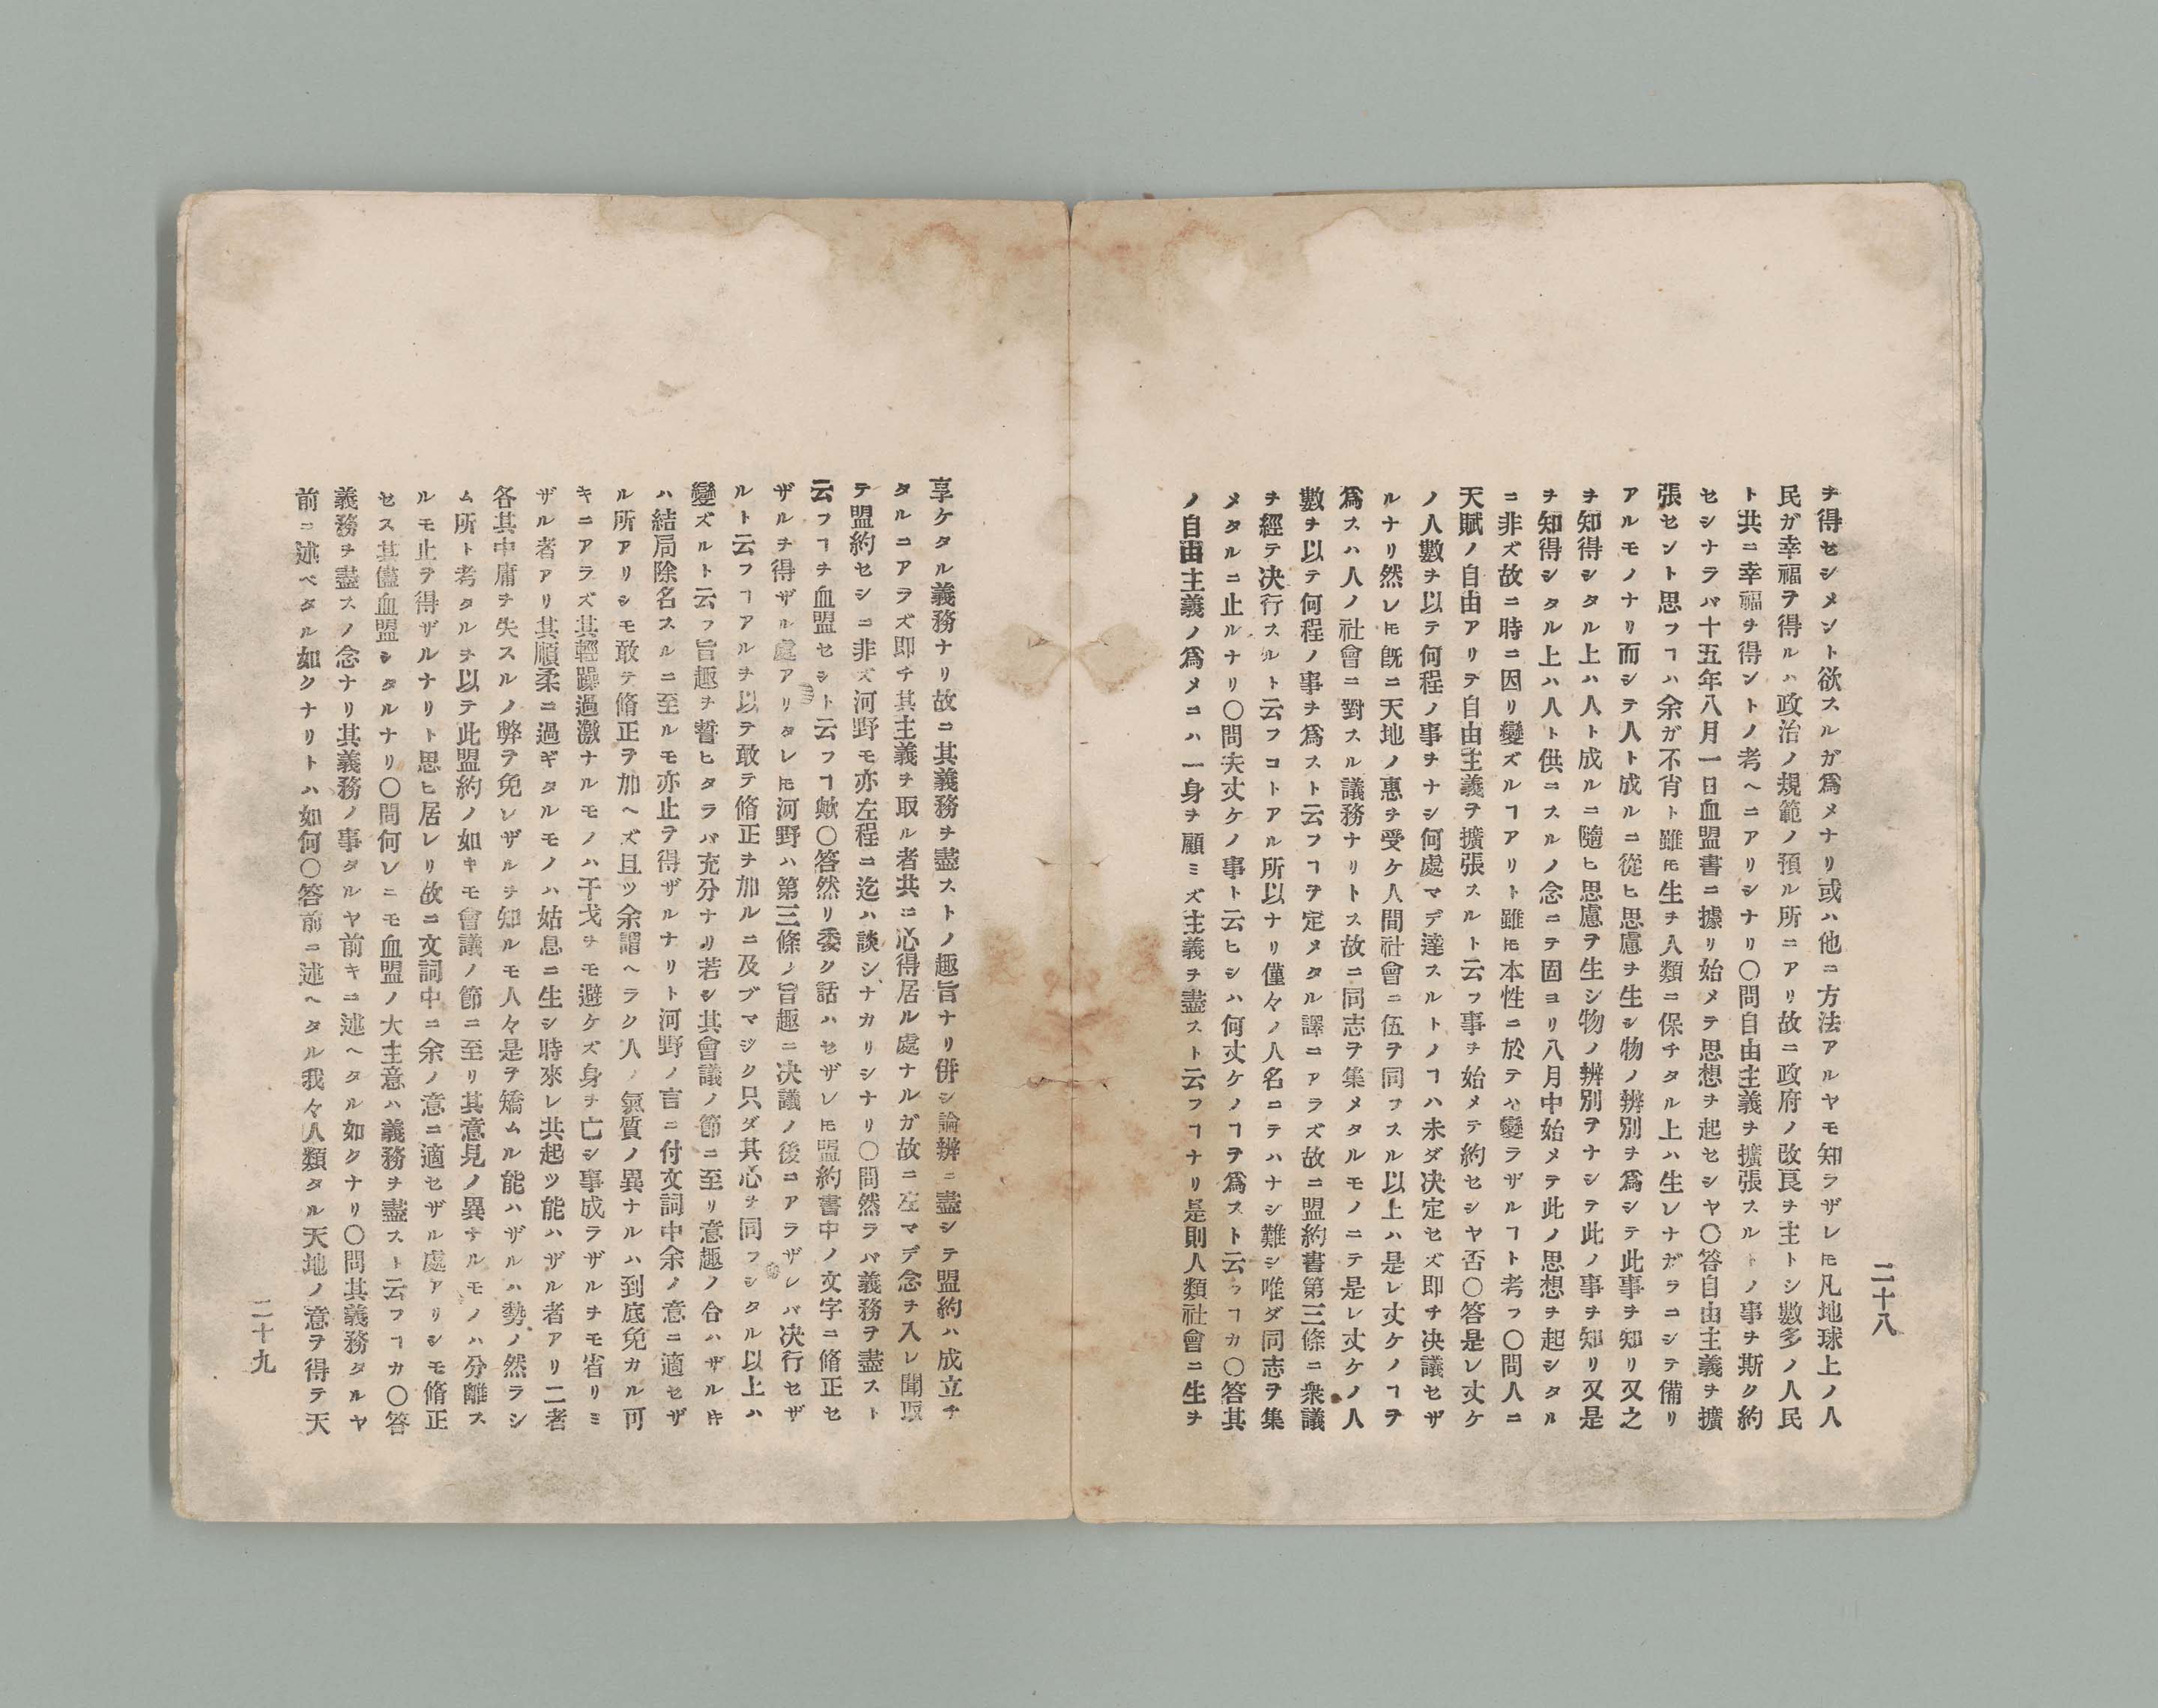 二十八
ヲ得セシメント欲スルガ爲メナリ或ハ他ニ方法アルヤモ知ラザレ𪜈凡地球上ノ人
民ガ幸福ヲ得ルハ政治ノ規範ノ預ル所ニアリ故ニ政府ノ改良ヲ主トシ數多ノ人民
ト共ニ幸福ヲ得ントノ考ヘニアリシナリ〇問自由主義ヲ擴張スルトノ事ヲ斯ク約
セシナラバ十五年八月一日血盟書ニ據リ始メテ思想ヲ起セシヤ〇答自由主義ヲ擴
張セント思フヿハ余ガ不肖ト雖𪜈生ヲ人類ニ保チタル上ハ生レナガラニシテ備リ
アルモノナリ而シテ人ト成ルニ從ヒ思慮ヲ生シ物ノ辨別ヲ爲シテ此事ヲ知リ又之
ヲ知得シタル上ハ人ト成ルニ隨ヒ思慮ヲ生シ物ノ辨別ヲナシテ此ノ事ヲ知リ又是
ヲ知得シタル上ハ人ト供ニスルノ念ニテ固ヨリ八月中始メテ此ノ思想ヲ起シタル
ニ非ズ故ニ時ニ因リ變ズルヿアリト雖𪜈本性ニ於テハ變ラザルヿト考フ〇問人ニ
天賦ノ自由アリテ自由主義ヲ擴張スルト云フ事ヲ始メテ約セシヤ否〇答是レ丈ケ
ノ人數ヲ以テ何程ノ事ヲナシ何處マデ達スルトノヿハ未ダ决定セズ即チ决議セザ
ルナリ然レ𪜈既ニ天地ノ惠ヲ受ケ人間社會ニ伍ヲ同フスル以上ハ是レ丈ケノヿヲ
爲スハ人ノ社會ニ對スル議務ナリトス故ニ同志ヲ集メタルモノニテ是レ丈ケノ人
數ヲ以テ何程ノ事ヲ爲スト云フヿヲ定メタル譯ニアラズ故ニ盟約書第三條ニ衆議
ヲ經テ决行スルト云フコトアル所以ナリ僅々ノ人名ニテハナシ難シ唯ダ同志ヲ集
メタルニ止ルナリ〇問夫丈ケノ事ト云ヒシハ何丈ケノヿヲ爲スト云フヿカ〇答其
ノ自由主義ノ爲メニハ一身ヲ顧ミズ主義ヲ盡スト云フヿナリ是則人類社會ニ生ヲ
享ケタル義務ナリ故ニ其義務ヲ盡ストノ趣旨ナリ併シ論辨ニ盡シテ盟約ハ成立チ
タルニアラズ即チ其主義ヲ取ル者共ニ心得居ル處ナルガ故ニ左マデ念ヲ入レ聞取
テ盟約セシニ非ズ河野モ亦左程ニ迄ハ談シナカリシナリ〇問然ラバ義務ヲ盡スト
云フヿヲ血盟セシト云フヿ歟〇答然リ委ク話ハセザレ𪜈盟約書中ノ文字ニ脩正セ
ザルヲ得ザル處アリタレ𪜈河野ハ第三條ノ旨趣ニ决議ノ後ニアラザレバ决行セザ
ルト云フヿアルヲ以テ敢テ脩正ヲ加ルニ及ブマジク只ダ其心ヲ同フシタル以上ハ
變ズルト云フ旨趣ヲ誓ヒタラバ充分ナリ若シ其會議ノ節ニ至リ意趣ノ合ハザル𬼀
ハ結局除名スルニ至ルモ亦止ヲ得ザルナリト河野ノ言ニ付文詞中余ノ意ニ適セザ
ル所アリシモ敢テ脩正ヲ加ヘズ且ツ余謂ヘラク人ノ氣質ノ異ナルハ到底免カル可
キニアラズ其輕躁過激ナルモノハ干戈ヲモ避ケズ身ヲ亡シ事成ラザルヲモ省リミ
ザル者アリ其順柔ニ過ギタルモノハ姑息ニ生シ時來レ共起ツ能ハザル者アリ二者
各其中庸ヲ失スルノ弊ヲ免レザルヲ知ルモ人々是ヲ矯ムル能ハザルハ勢ノ然ラシ
ム所ト考タルヲ以テ此盟約ノ如キモ會議ノ節ニ至リ其意見ノ異ナルモノハ分離ス
ルモ止ヲ得ザルナリト思ヒ居レリ故ニ文詞中ニ余ノ意ニ適セザル處アリシモ脩正
セス其儘血盟シタルナリ〇問何レニモ血盟ノ大主意ハ義務ヲ盡スト云フヿカ〇答
義務ヲ盡スノ念ナリ其義務ノ事タルヤ前キニ述ヘタル如クナリ〇問其義務タルヤ
前ニ述ベタル如クナリトハ如何〇答前ニ述ヘタル我々人類タル天地ノ意ヲ得テ天
二十九